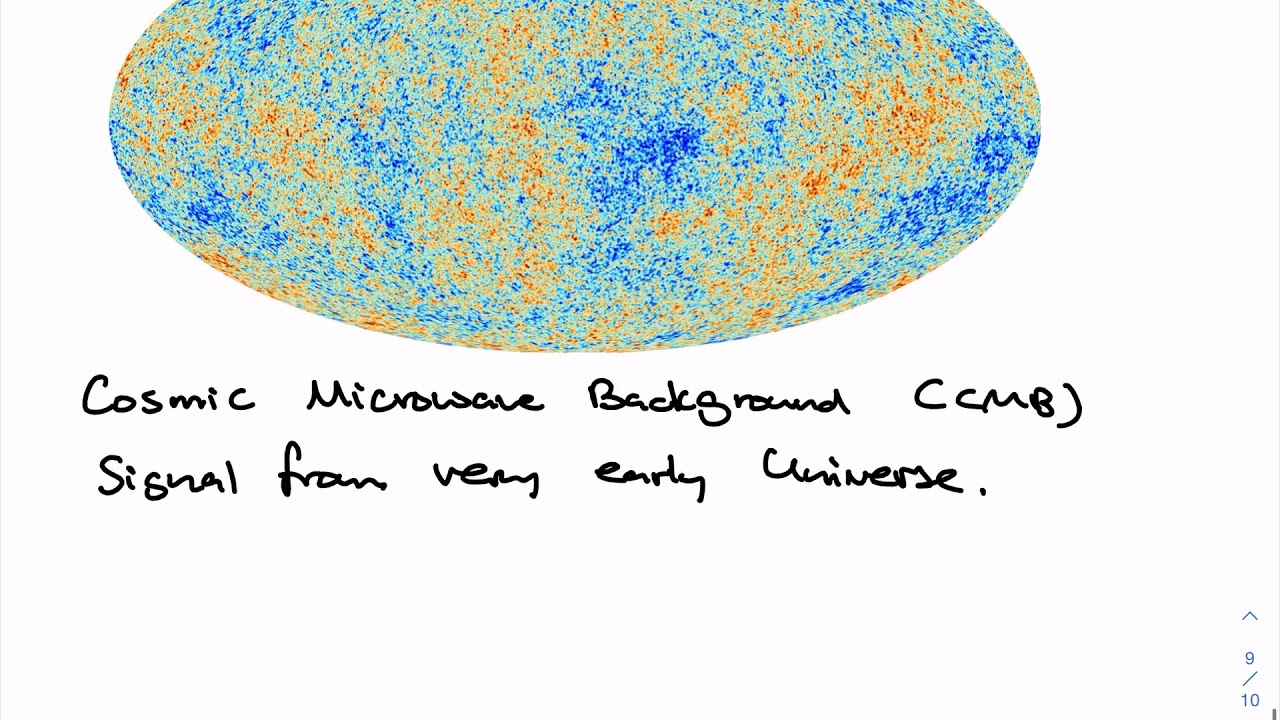 Cosmic Microwave Background (CMB)
Signal from very early Universe.
9
/
10